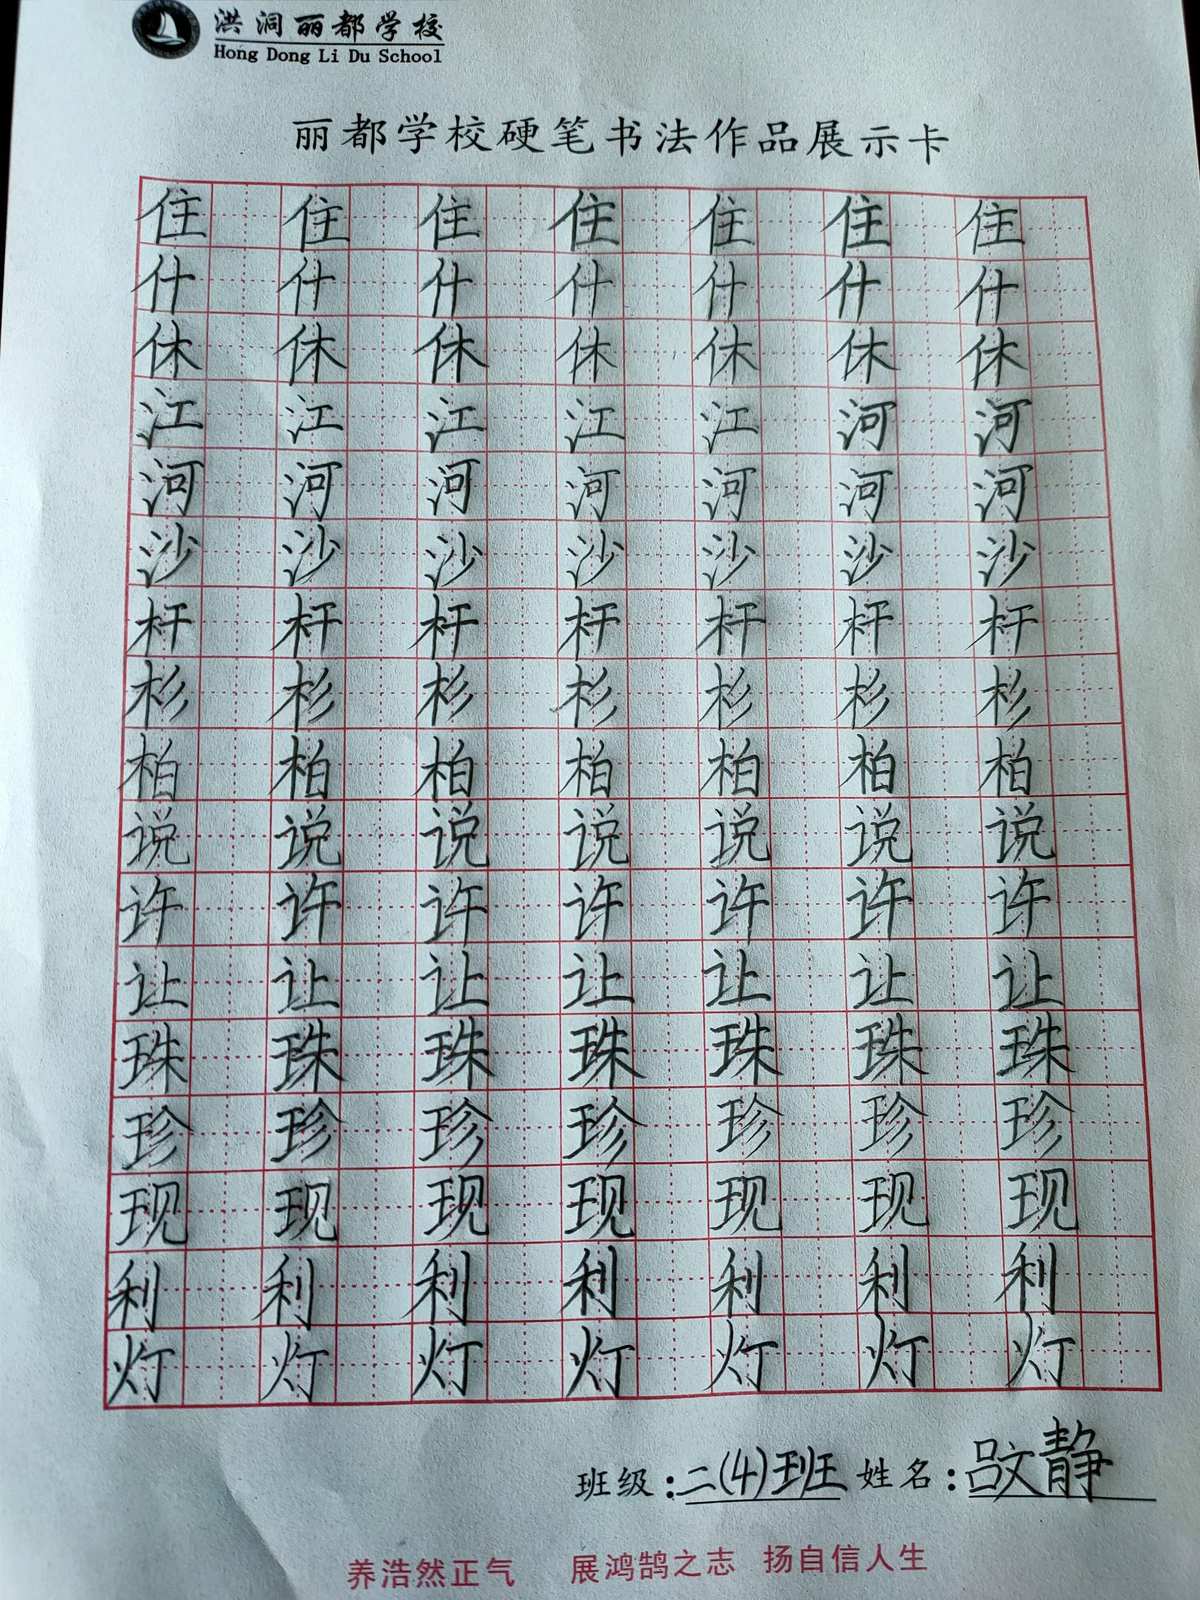 洪洞丽都学校
Hong Dong Li Du School
丽都学校硬笔书法作品展示卡
住 住 住 住 住 住 住
什 什 什 什 什 什 什
休 休 休 休 休 休 休
江 江 江 江 江 河 河
河 河 河 河 河 河 河
沙 沙 沙 沙 沙 沙 沙
杆 杆 杆 杆 杆 杆 杆
杉 杉 杉 杉 杉 杉 杉
柏 柏 柏 柏 柏 柏 柏
说 说 说 说 说 说 说
许 许 许 许 许 许 许
让 让 让 让 让 让 让
珠 珠 珠 珠 珠 珠 珠
珍 珍 珍 珍 珍 珍 珍
现 现 现 现 现 现 现
利 利 利 利 利 利 利
灯 灯 灯 灯 灯 灯 灯
班级:二(4)班 姓名:吕文静
养浩然正气 展鸿鹄之志 扬自信人生